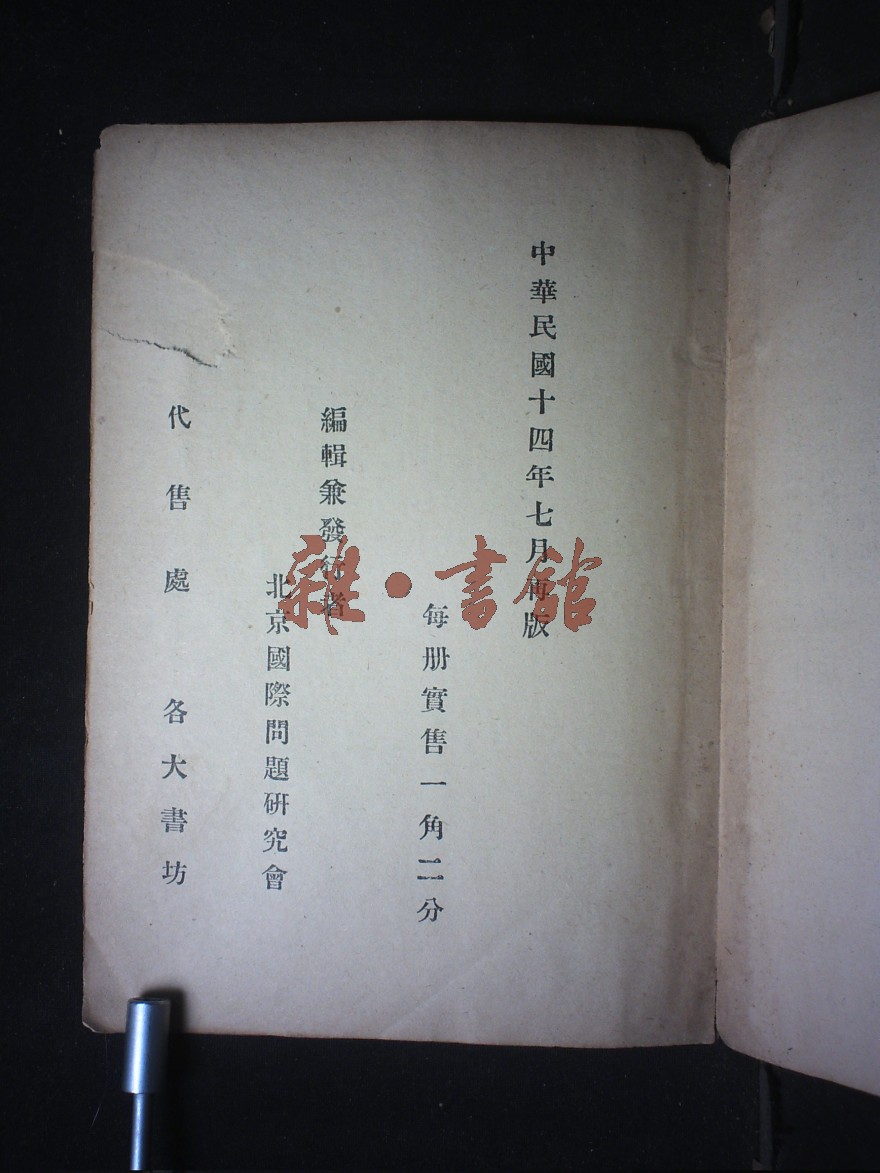 中華民國十四年七月再版
每册實售一角二分
編輯兼發行者
北京國際問題研究會
代售處 各大書坊
雜·書館